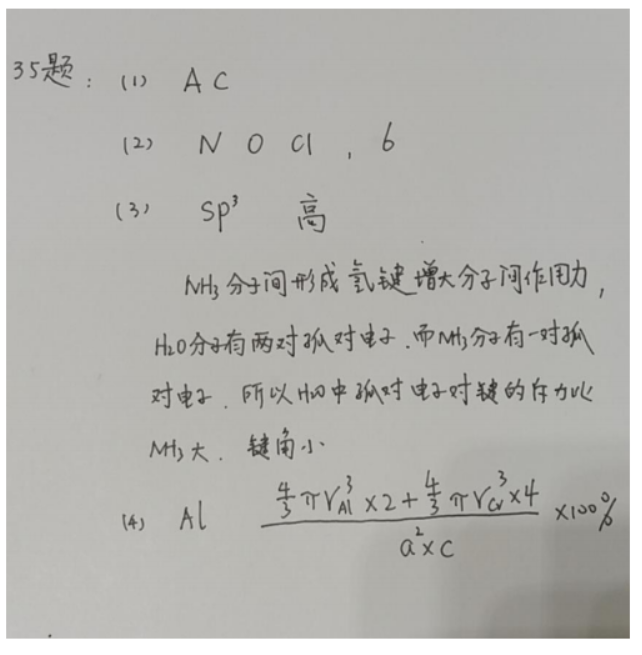 35题: (1) A C
(2) N O Cl , 6
(3) sp³ 高
NH₃分子间形成氢键增大分子间作用力,
H₂O分子有两对孤对电子.而NH₃分子有一对孤
对电子.所以H₂O中孤对电子对键的斥力比
NH₃大.键角小
(4) Al $\frac{\frac{4}{3}\pi r_{Al}^3 \times 2 + \frac{4}{3}\pi r_{Cr}^3 \times 4}{a^2 \times c} \times 100\%$